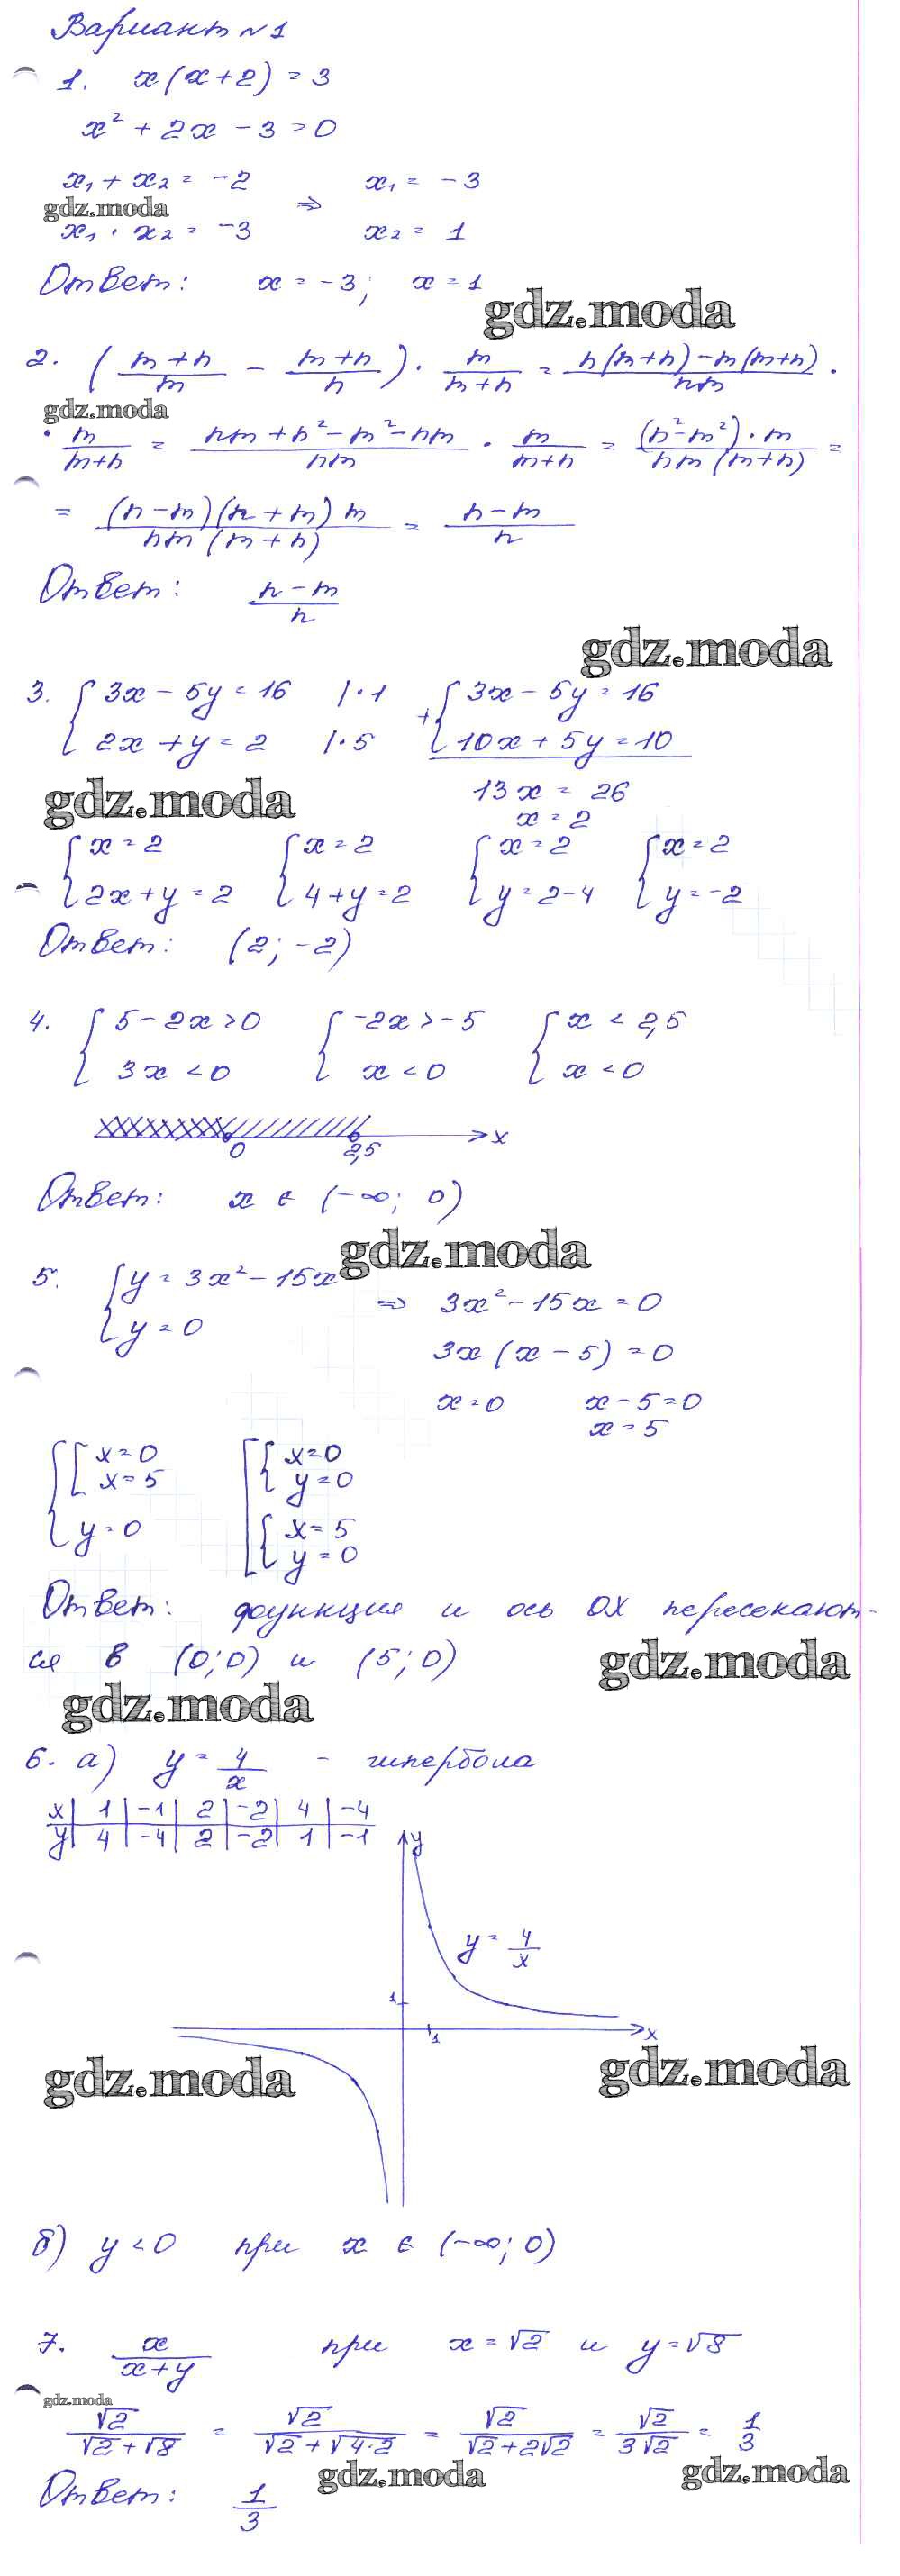 Вариант №1
1. x(x+2) = 3
x² + 2x - 3 = 0
x₁ + x₂ = -2 ⇒ x₁ = -3
gdz.moda
x₁ · x₂ = -3 x₂ = 1
Ответ: x = -3; x = 1
gdz.moda
2. ((m+n)/m - (m+n)/n) · m/(m+n) = (n(m+n) - m(m+n))/nm ·
gdz.moda
· m/(m+n) = (nm + n² - m² - nm)/nm · m/(m+n) = ((n² - m²) · m)/(nm(m+n)) =
= ((n-m)(n+m)m)/(nm(m+n)) = (n-m)/n
Ответ: (n-m)/n
gdz.moda
3. { 3x - 5y = 16 |·1 + { 3x - 5y = 16
2x + y = 2 |·5 10x + 5y = 10
gdz.moda 13x = 26
x = 2
{ x = 2 { x = 2 { x = 2 { x = 2
2x + y = 2 4 + y = 2 y = 2-4 y = -2
Ответ: (2; -2)
4. { 5 - 2x > 0 { -2x > -5 { x < 2,5
3x < 0 x < 0 x < 0
0 2,5 x
Ответ: x ∈ (-∞; 0)
gdz.moda
5. { y = 3x² - 15x ⇒ 3x² - 15x = 0
y = 0
3x(x - 5) = 0
x = 0 x - 5 = 0
x = 5
{ [ x = 0 [ { x = 0
x = 5 y = 0
y = 0 { x = 5
y = 0
Ответ: функция и ось OX пересекают-
ся в (0; 0) и (5; 0)
gdz.moda
gdz.moda
6. а) y = 4/x - гипербола
x | 1 | -1 | 2 | -2 | 4 | -4
y | 4 | -4 | 2 | -2 | 1 | -1
y
y = 4/x
1
1 x
gdz.moda gdz.moda
б) y < 0 при x ∈ (-∞; 0)
7. x/(x+y) при x = √2 и y = √8
gdz.moda
√2/(√2+√8) = √2/(√2+√(4·2)) = √2/(√2+2√2) = √2/(3√2) = 1/3
gdz.moda gdz.moda
Ответ: 1/3